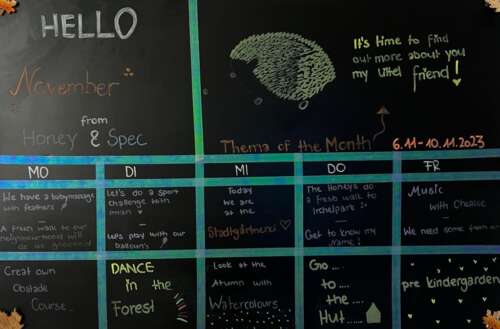 HELLO
November
from
Honey & Spec
It's time to find
out more about you
my littel friend!
Thema of the Month
6.11 - 10.11.2023
MO
DI
MI
DO
FR
We have a babymassage
with feathers
A fresh walk to our
neighbourhood will
do us good
Let's do a sport
challenge with
Let's play with our
Balloons
Today
we are
at the
Stadtgärtnerei
The Honeys do
a fresh walk to
Get to know my
name!
Music
with
We need some fresh air
Creat own
Obstacle
Course
DANCE
in the
Forest
Look at the
Atumn with
Watercolours
Go ....
to ....
the ....
Hut
pre kindergarden